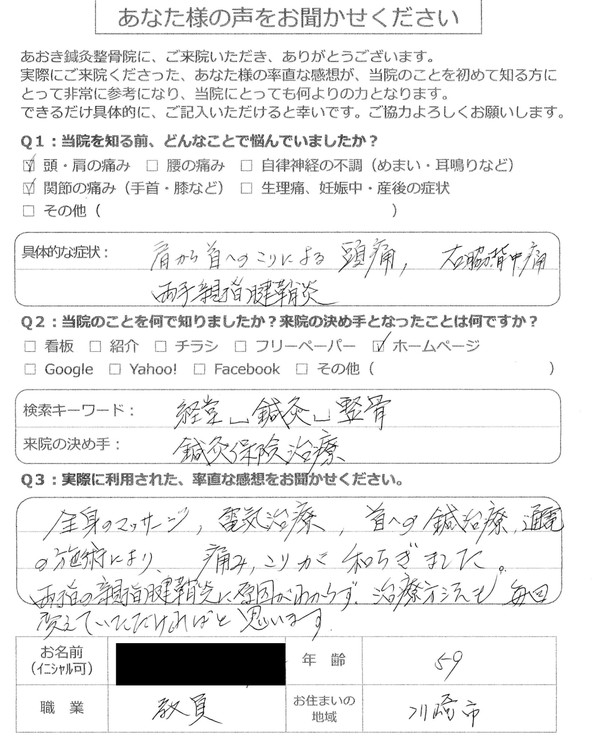 あなた様の声をお聞かせください
あおき鍼灸整骨院に、ご来院いただき、ありがとうございます。
実際にご来院くださった、あなた様の率直な感想が、当院のことを初めて知る方に
とって非常に参考になり、当院にとっても何よりの力となります。
できるだけ具体的に、ご記入いただけると幸いです。ご協力よろしくお願いします。
Q1：当院を知る前、どんなことで悩んでいましたか？
☑ 頭・肩の痛み □ 腰の痛み □ 自律神経の不調（めまい・耳鳴りなど）
☑ 関節の痛み（手首・膝など） □ 生理痛、妊娠中・産後の症状
□ その他（ ）
具体的な症状： 肩から首へのこりによる 頭痛， 右脇背中痛
両手親指腱鞘炎
Q2：当院のことを何で知りましたか？来院の決め手となったことは何ですか？
□ 看板 □ 紹介 □ チラシ □ フリーペーパー ☑ ホームページ
□ Google □ Yahoo! □ Facebook □ その他（ ）
検索キーワード： 経堂␣鍼灸␣整骨
来院の決め手： 鍼灸保険治療
Q3：実際に利用された、率直な感想をお聞かせください。
全身のマッサージ，電気治療，首への鍼治療，通電
の施術により、痛み，こりが和らぎました。
両指の親指腱鞘炎に原因がわからず、治療方法も毎回
変えていただければと思います．
お名前
（イニシャル可）
年 齢 59
職 業 教員
お住まいの
地域 川崎市